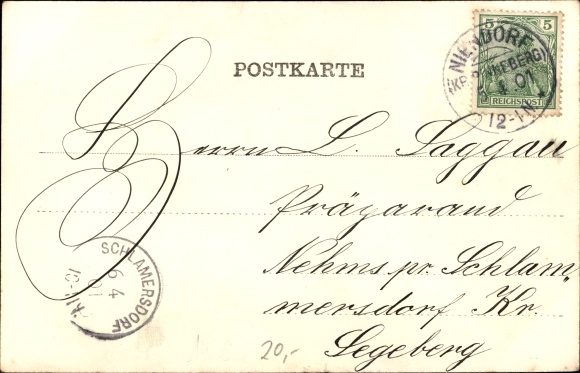 POSTKARTE
5 5
REICHSPOST
NIENDORF
(KR. PINNEBERG)
5 4 01
12-1N.
Herrn L. Saggau
Präparand
Nehms pr. Schlam-
mersdorf Kr.
Segeberg
SCHLAMERSDORF
6 4
01
20,-